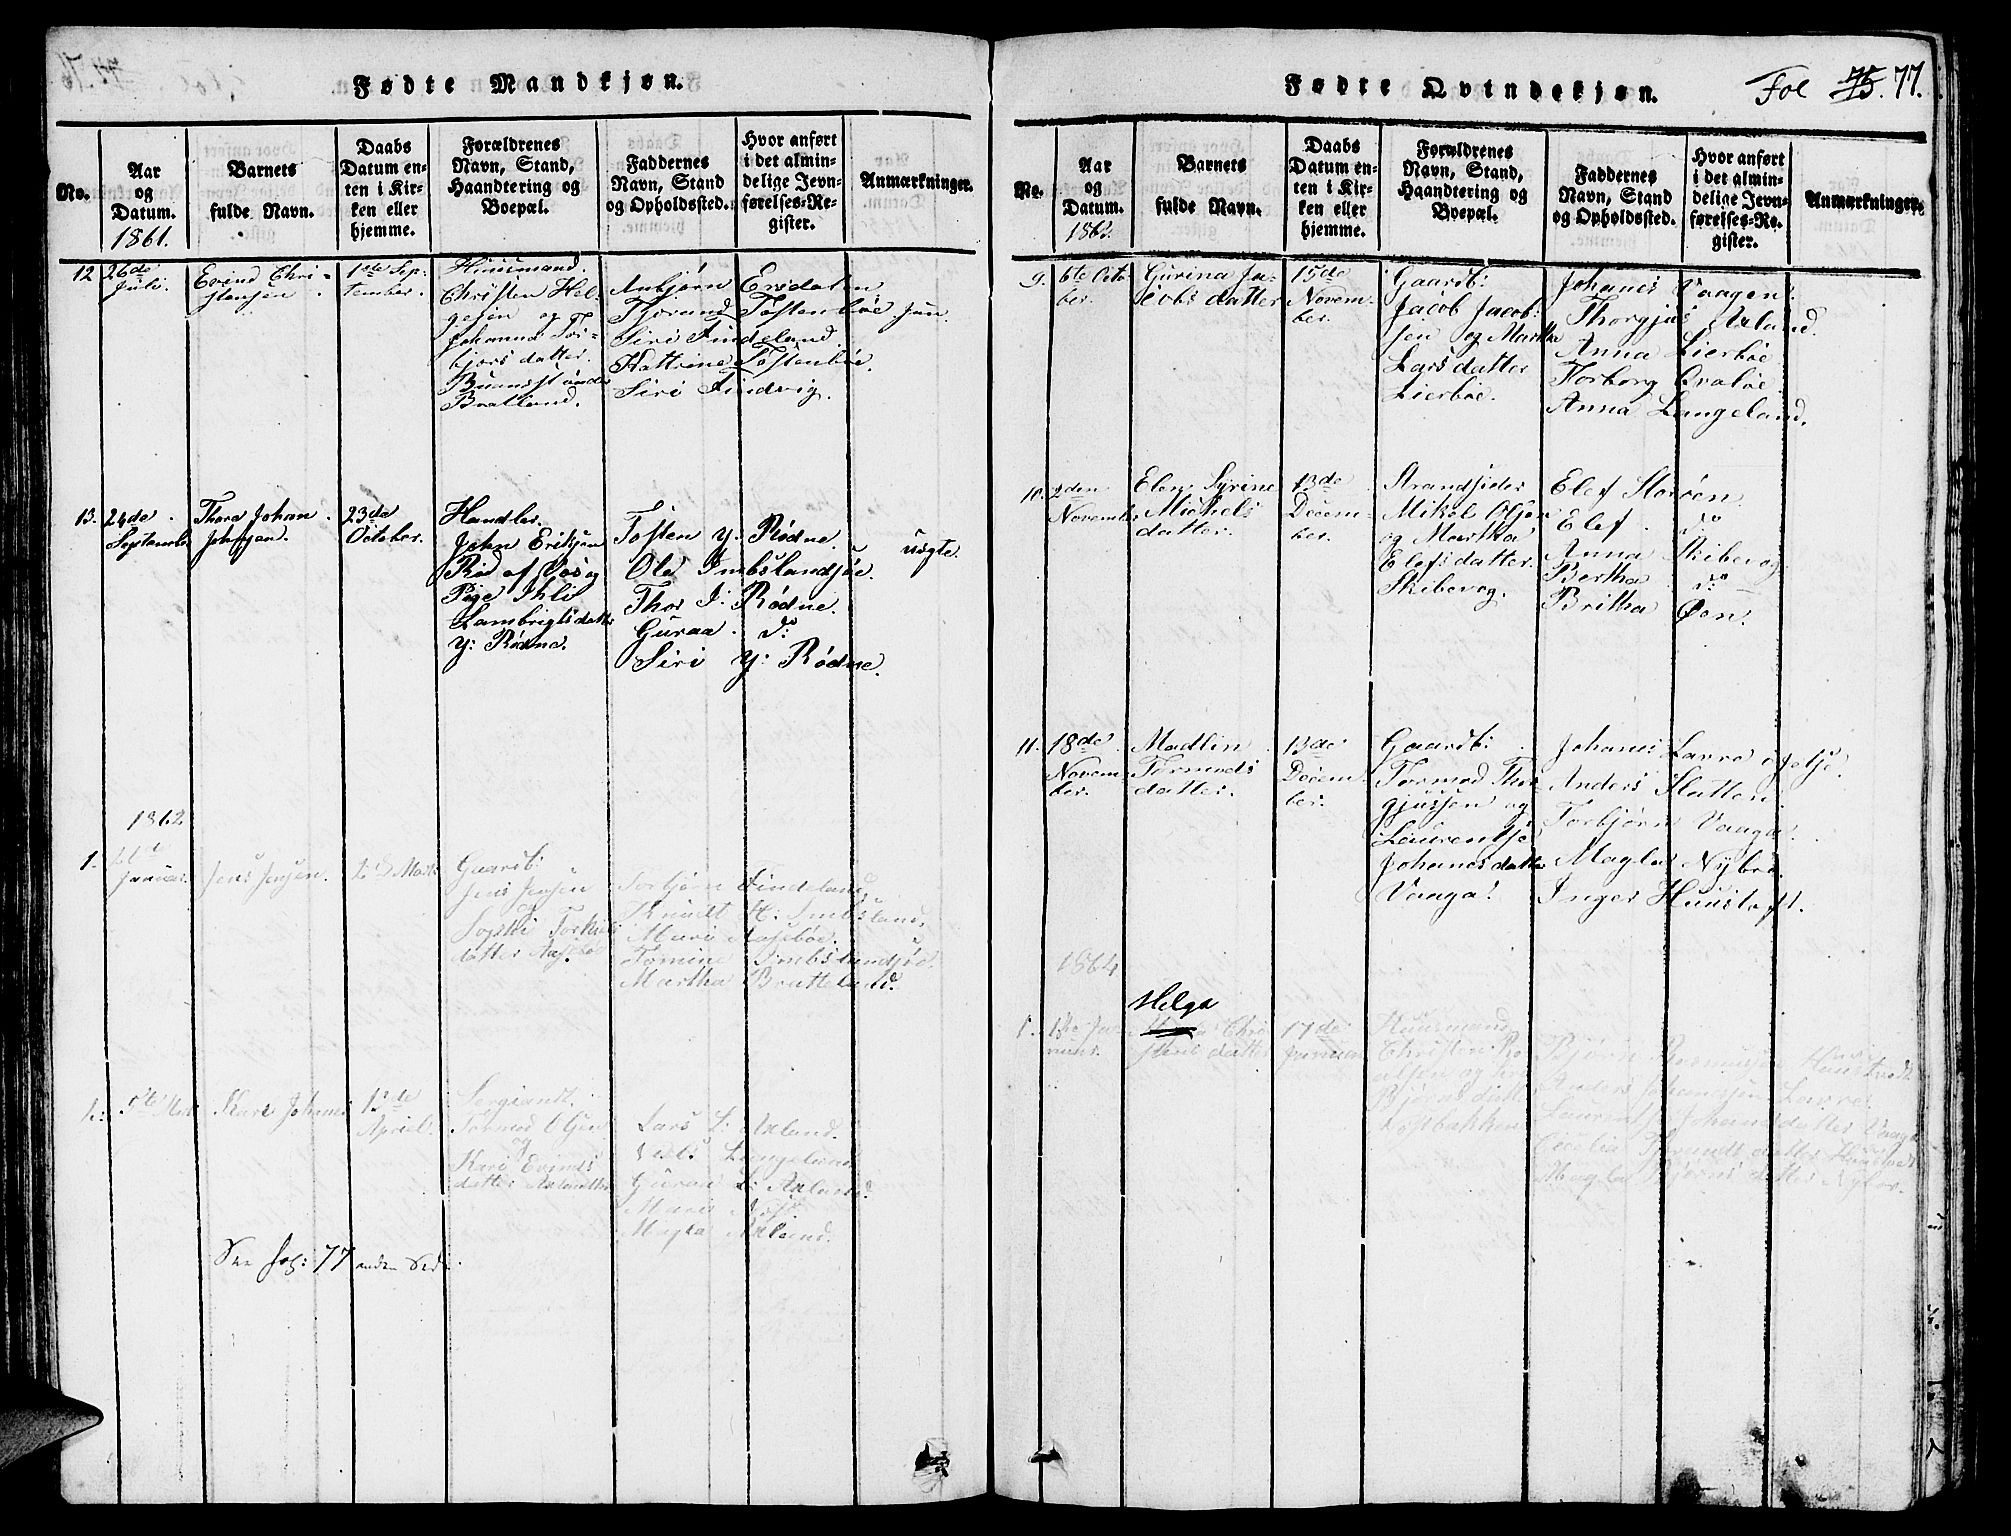 Fødte Mandkjøn.
No.
Aar og Datum.
1861.
Barnets fulde Navn.
Daabs Datum enten i Kirken eller hjemme.
Forældrenes Navn, Stand, Haandtering og Boepæl.
Faddernes Navn, Stand og Opholdssted.
Hvor anført i det almindelige Jevnførelses-Register.
Anmærkninger.
12
26de
Juli.
Evind Chri-
stensen
1ste Sep-
tember.
Huusmand.
Christen Hel-
gesen og
Johanna Tor-
bjorsdatter.
Bratland.
Anbjørn Ersdalen
Tjorund Tostenbøe Jun.
Siri Findeland.
Kattrine Tostenbøe.
Siri Findvig.
13.
24de
September
Thore Johan
Johnsen.
23de
October.
Handler.
John Eriksen
Rød af Vos og
Pige Ihli
Lambrigtsdatter
y: Rødne.
Tosten y. Rødne.
Ole Imbslandsjøe.
Thor I: Rødne.
Guraa do:
Siri y: Rødne.
uægte.
1862
1.
Januar.
Jens Jensen.
2d Marts
Gaardb:
Jens Jensen
og
Torkils
datter Aasebøe
Torbjørn Findeland,
Knudt H. Imbsland,
Mari Aasebøe.
Tomine Imbslandsjøe.
Martha Bratteland.
2:
5te Marts
Kari Johanne
12de
April.
Sergiandt.
Tormod Olsen
og
Kari Evinds
datter Axland
Lars L. Axland.
Nils Langeland
Guraa L: Axland.
Mari
Magla Axland.
See fol: 77 anden Side.
Fødte Qvindekjøn.
Fol 75. 77.
No.
Aar og Datum.
1863.
Barnets fulde Navn.
Daabs Datum enten i Kirken eller hjemme.
Forældrenes Navn, Stand, Haandtering og Boepæl.
Faddernes Navn, Stand og Opholdssted.
Hvor anført i det almindelige Jevnførelses-Register.
Anmærkninger.
9.
6te Octo-
ber.
Gurina Ja-
cobsdatter
15de
Novem-
ber.
Gaardb:
Jacob Jacob-
sen og Martha
Larsdatter
Lierbøe.
Johanes Vaagen.
Thorgjus Axland.
Anna Lierbøe
Torborg Qvaløe
Anna Langeland.
10.
2den
November
Elen Syrine
Mickels
datter.
13de
Decem-
ber.
Strandsider
Mikel Olsen
og Martha
Elefsdatter.
Skibevog.
Elef Storøen
Elef do
Anna Skibevog
Bertha do
Britha Øen.
11.
18de
Novem-
ber.
Madlin
Tormods
datter.
13de
Decem-
ber.
Gaardb:
Tormod Thor-
gjussen og
Laurentse
Johanesdatter
Vaaga.
Johanes Larvesjetse.
Anders Slatten
Torbjørn Vaaga.
Magla Nybrø
Inger Huustoft.
1864
1.
1ste Ja-
nuar.
Helga
Chri-
stensdatter
17de
Januar
Huusmand
Christen
og
Bjørnsdatter
Løstbakken
Bjørn Rasmusen Huustvedt
Anders Johansen Larve.
Johansdatter Vaaga
Cecelia datter
Magla Bjørns datter Nybrø.